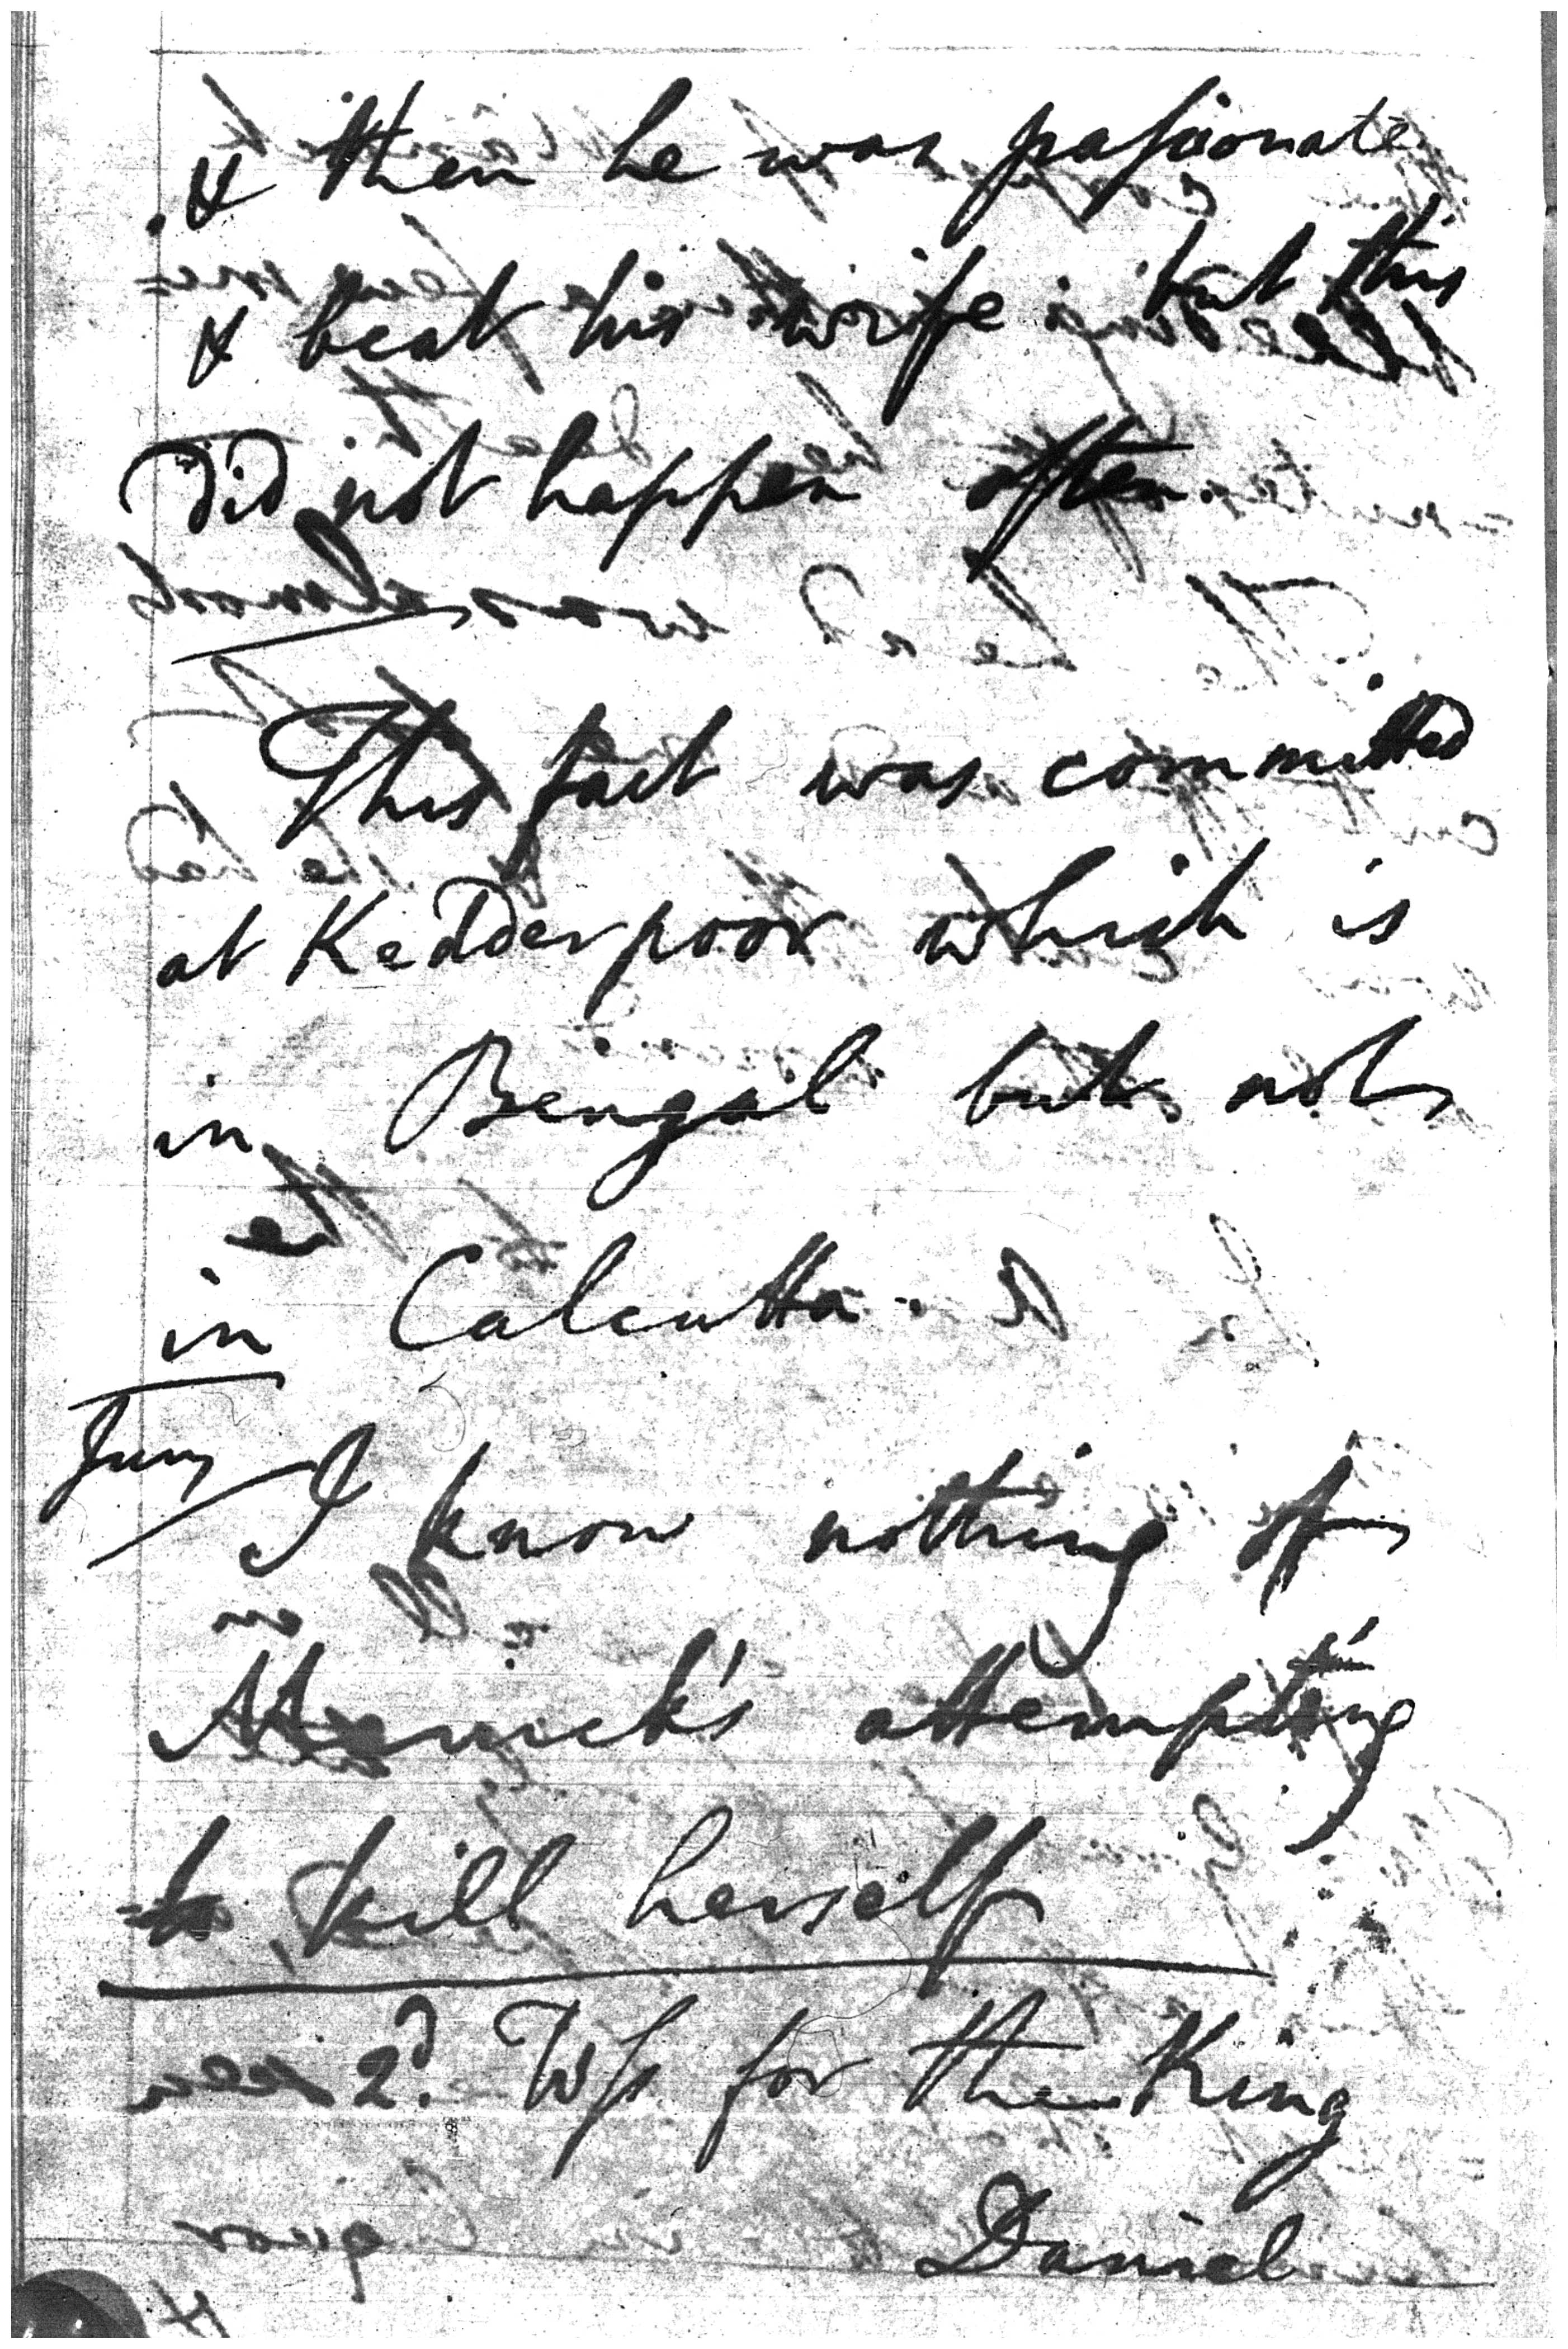 & then he was passionate
& beat his wife; but this
did not happen often.
This fact was committed
at Kedderpoor which is
in Bengal but not
in Calcutta.
Jury
I know nothing of
attempting
to kill herself
2d. Wss for the King
Daniel